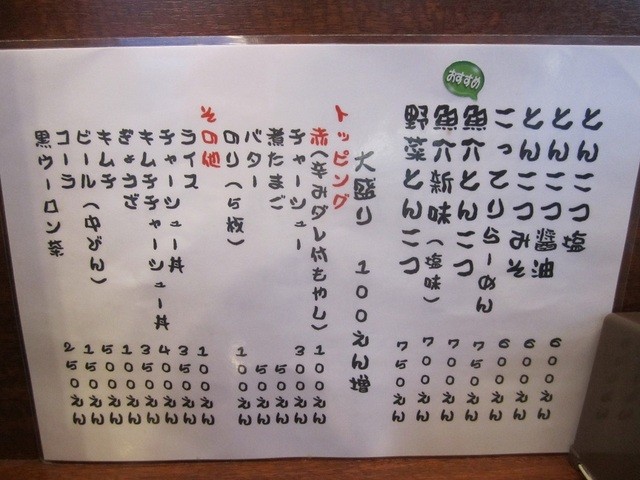 とんこつ塩 600えん
とんこつ醤油 600えん
とんこつみそ 600えん
こってりらーめん 750えん
おすすめ
魚介とんこつ 700えん
魚介新味（塩味） 700えん
野菜とんこつ 750えん
大盛り 100えん増
トッピング
赤（辛みダレ付もやし） 100えん
チャーシュー 300えん
煮たまご 50えん
バター 50えん
のり（5枚） 100えん
その他
ライス 100えん
チャーシュー丼 350えん
キムチチャーシュー丼 400えん
ぎょうざ 350えん
キムチ 100えん
ビール（中どん） 500えん
コーラ 150えん
黒ウーロン茶 250えん